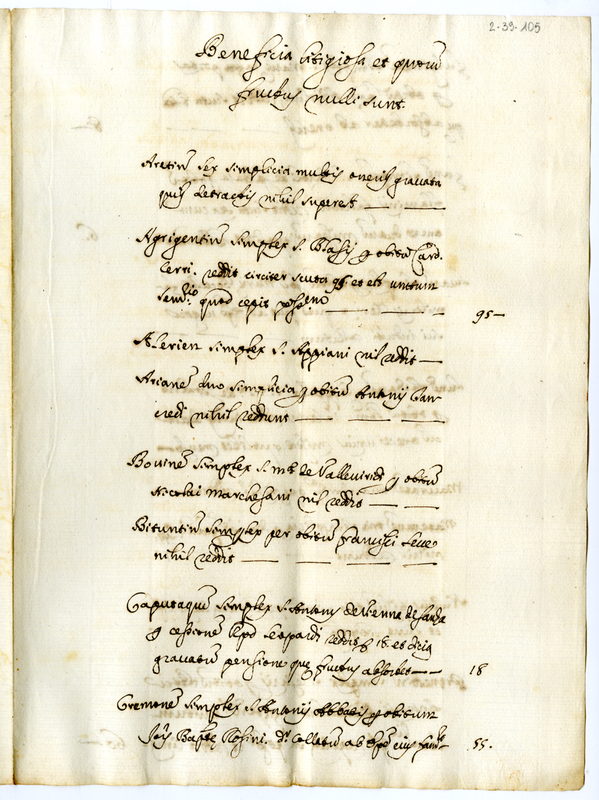 2-39-105
Beneficia litigiosa et quorū
fructus nulli sunt
Aretin̄ sex simplicia multis oneribꝰ gravata
quibꝰ detractis nihil superest
Agrigentin̄ simplex S. Blasij ꝑ obitū Card.
Cerri. reddit circiter scuta 95. et est unitum
Sem.rio quod cepit poss.em
95
Alerien simplex S. Appiani nil reddit
Arianen̄ duo simplicia ꝑ obitū Antonij
nihil reddunt
Bovinen̄ simplex S. Mē de Valleviridi ꝑ obitū
Nicolai Marchesani nil reddit
Bituntin̄ simplex per obitū Francisci
nihil reddit
Caputaquen̄ simplex S. Antonij de Vienna
ꝑ cessionē Leopardi reddit 18. et
gravatū pensione que fructus absorbet
18
Cremonen̄ simplex S. Antonij Abbatis ꝑ obitum
Jois Baptē Rosini. Collatū ab Epō eius
55.